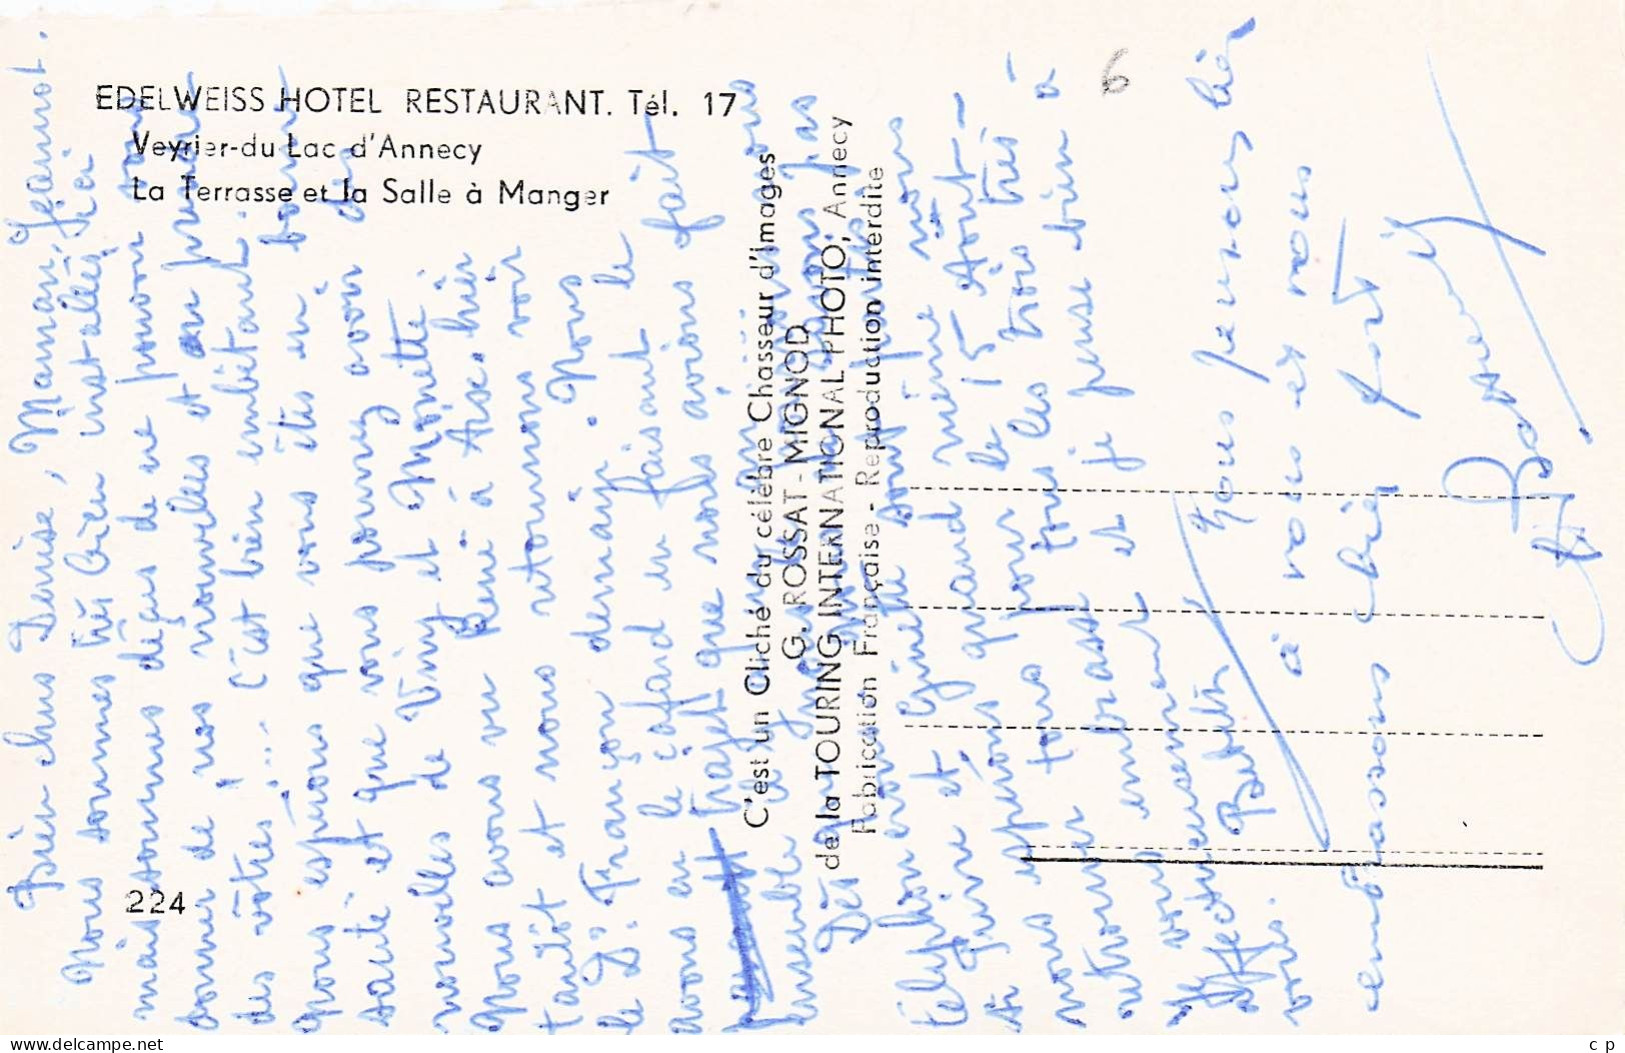 EDELWEISS HOTEL RESTAURANT. Tél. 17
Veyrier-du Lac d'Annecy
La Terrasse et la Salle à Manger
224
C'est un Cliché du célèbre Chasseur d'images
G. ROSSAT-MIGNOD
de la TOURING INTERNATIONAL PHOTO, Annecy
Fabrication Française - Reproduction interdite
6
Bien chers Denise, Maman, Jeannot.
Nous sommes très bien installées ici
mais sommes déçus de ne pouvoir vous
donner de nos nouvelles et en prendre
des vôtres .... C'est bien embêtant.
Nous espérons que vous êtes en bonne
santé et que vous pourrez avoir des
nouvelles de Viny et Monette.
Nous avons vu René à Aix hier
tantôt et nous retournons voir
le Dr Françon demain. Nous
avons eu le cafard en faisant le
trajet que nous avions fait
ensemble
Dès que
téléphon Ginette nous
quand même
et espérons pour le 15 Août
nous tous les trois très
retrouver tous
vous embrasse et je pense bien à
vous.
Affectueusement
Babeth
Nous pensons bien
à vous et vous
embrassons bien fort
delcampe.net
c p